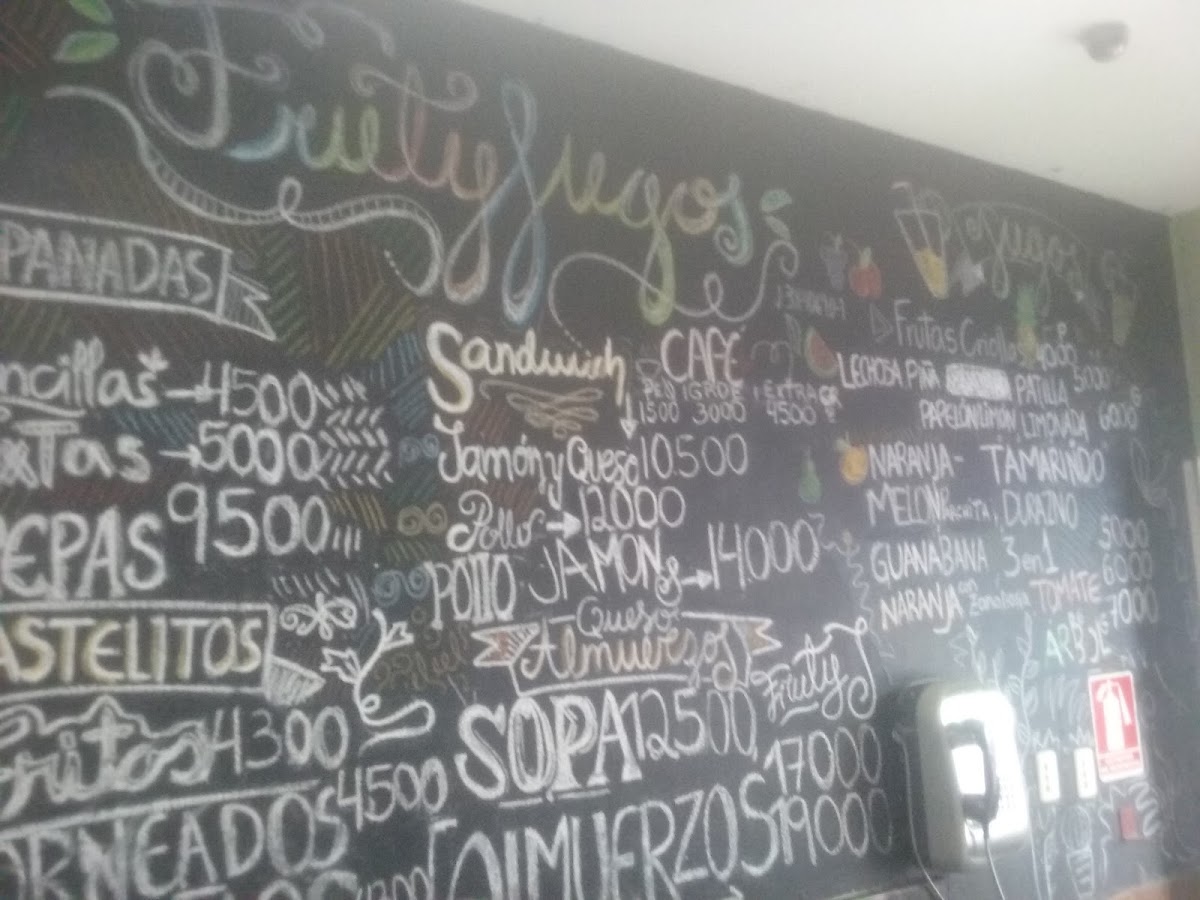 FrutyJugos
PANADAS
ncillas 4500
xtas 5000
EPAS 9500
ASTELITOS
Fritos 4300
ORNEADOS 4500
Sandwich
Jamón y Queso 10.500
Pollo 12000
POllO JAMON y 14.000
Queso
CAFÉ
PEQ GRDE EXTRAGR
1500 3000 4500
Almuerzos
SOPA 12500
Fruty
17000
AlMUERZOS 19000
Jugos
Frutas Criollas
LECHOSA PIÑA PATILLA 5000
PAPELONLIMÓN, LIMONADA 6000
NARANJA - TAMARINDO
MELON Parchita, DURAZNO
GUANABANA 3 en 1 5000
6000
NARANJA con Zanahoria TOMATE 7000